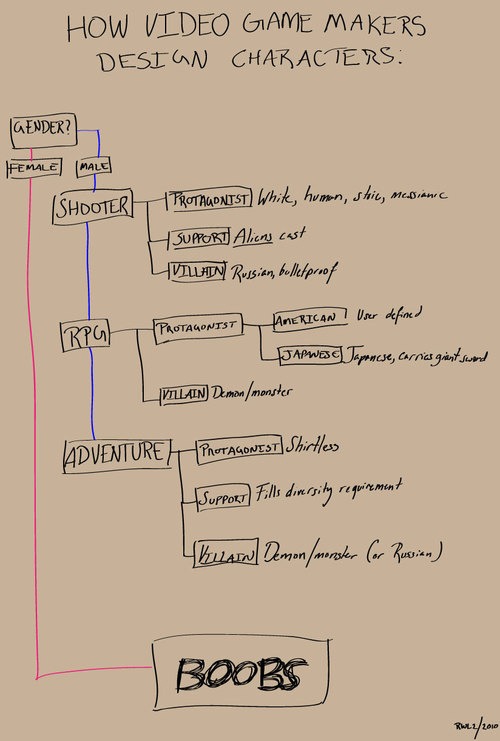 HOW VIDEO GAME MAKERS
DESIGN CHARACTERS:
GENDER?
FEMALE
MALE
SHOOTER
PROTAGONIST White, human, stoic, messianic
SUPPORT Aliens cast
VILLAIN Russian, bulletproof
RPG
PROTAGONIST
AMERICAN User defined
JAPANESE Japanese, carries giant sword
VILLAIN Demon/monster
ADVENTURE
PROTAGONIST Shirtless
SUPPORT Fills diversity requirement
VILLAIN Demon/monster (or Russian)
BOOBS
RWL2/2010